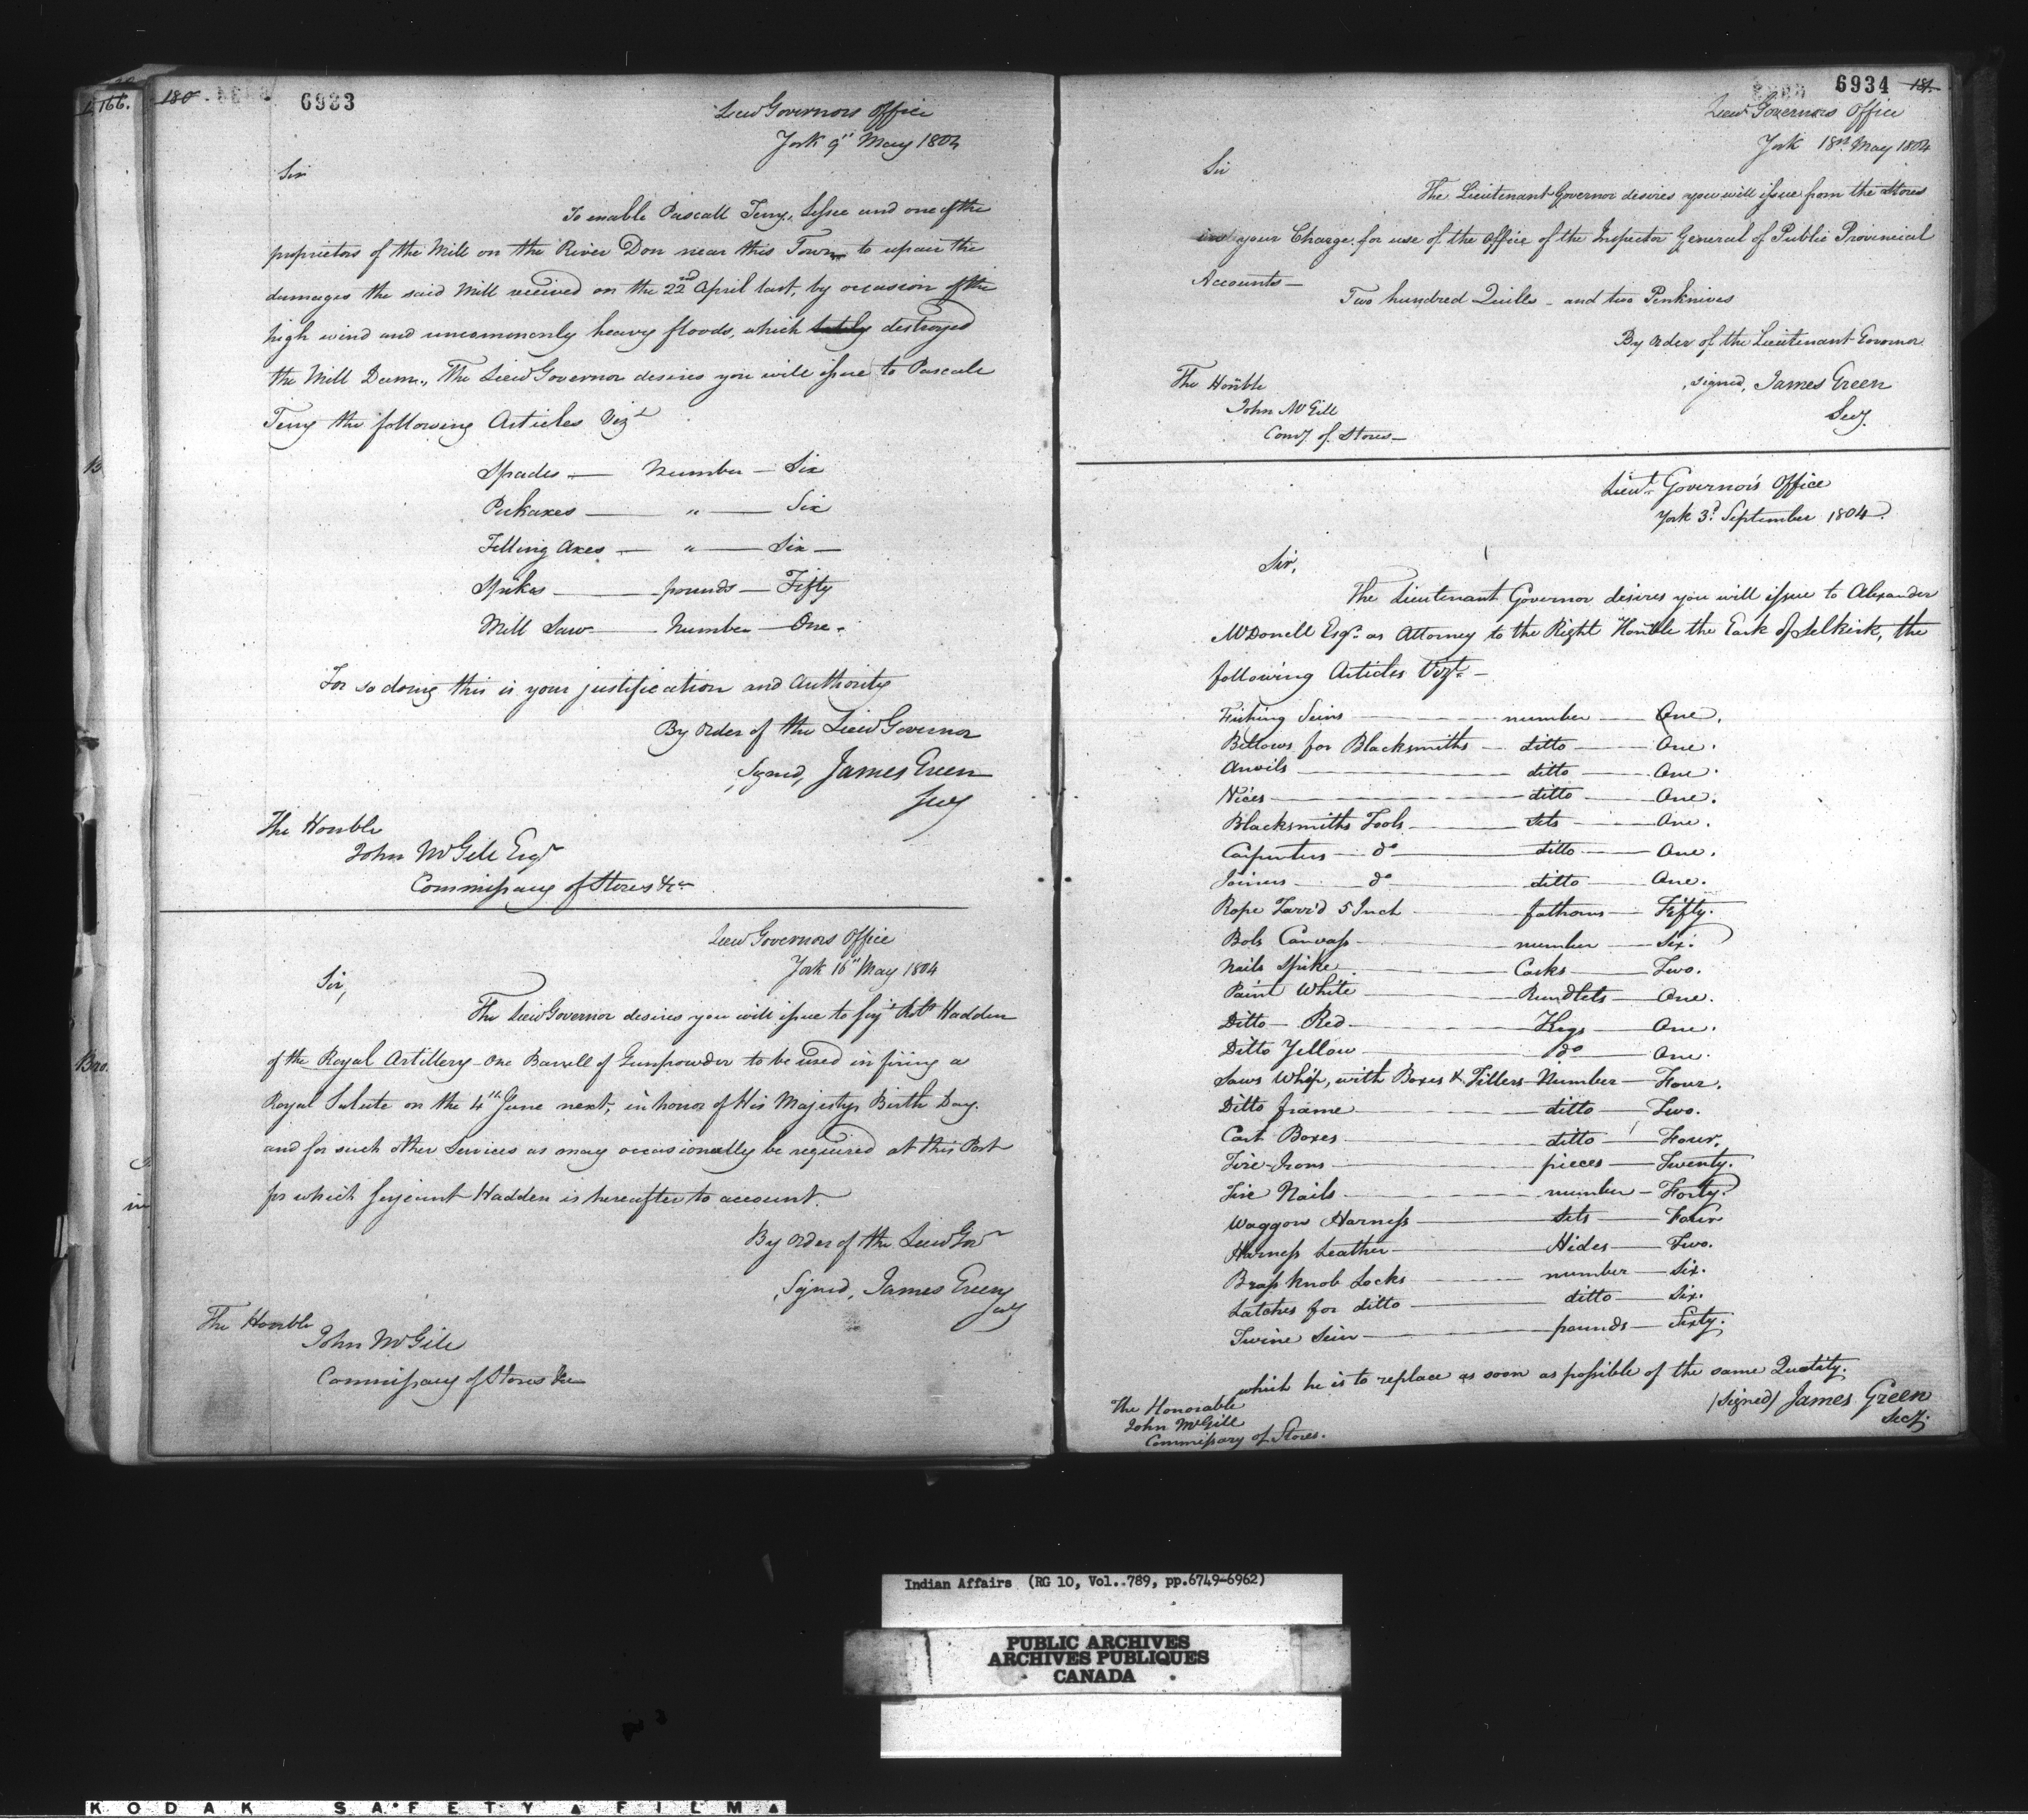 166.
180
6933
Lieut Governors Office
York 9th May 1804
Sir
To enable Pascall Terry, Lessee and one of the
proprietors of the Mill on the River Don near this Town to repair the
damages the said Mill received on the 22nd April last, by occasion of the
high wind and uncommonly heavy floods, which destroyed
the Mill Dam, The Lieut Governor desires you will issue to Pascale
Terry the following Articles Vizt
Spades — Number — Six
Pickaxes — " — Six
Felling Axes — " — Six —
Spikes — pounds — Fifty
Mill Saw — Number — One.
For so doing this is your justification and Authority
By Order of the Lieut Governor
Signed, James Green
Secy
The Honble
John McGill Esqr
Commissary of Stores &ca
Lieut Governors Office
York 16th May 1804
Sir,
The Lieut Governor desires you will issue to Serjt Robt Hadden
of the Royal Artillery One Barrell of Gunpowder to be used in firing a
Royal Salute on the 4th June next, in honor of His Majestys Birth Day.
and for such other Services as may occasionally be required at this Post
for which Serjeant Hadden is hereafter to account.
By order of the Lieut Govr
Signed, James Green
Secy
The Honble
John McGill
Commissary of Stores &ca
6934
181.
Lieut Governors Office
York 18th May 1804
Sir
The Lieutenant Governor desires you will issue from the Stores
in your Charge for use of the Office of the Inspector General of Public Provincial
Accounts —
Two hundred Quills — and two Penknives
By Order of the Lieutenant Governor
signed, James Green
Secy.
The Honble
John McGill
Comy of Stores —
Lieut. Governor's Office
York 3d September 1804.
Sir,
The Lieutenant Governor desires you will issue to Alexander
McDonell Esqr. as Attorney to the Right Honble the Earl of Selkirk, the
following Articles Vizt. —
Fishing Seins — number — One.
Bellows for Blacksmiths — ditto — One.
Anvils — ditto — One.
Vices — ditto — One.
Blacksmiths Tools — Sets — One.
Carpenters do — ditto — One.
Joiners do — ditto — One.
Rope Tarr'd 5 Inch — fathoms — Fifty.
Bolts Canvass — number — Six.
Nails Spike — Casks — Two.
Paint White — Rundlets — One.
Ditto — Red — Kegs — One.
Ditto Yellow — do — One.
Saws Whip, with Boxes & Tillers — Number — Four.
Ditto frame — ditto — Two.
Cart Boxes — ditto — Four.
Tire-Irons — pieces — Twenty.
Tire Nails — number — Forty.
Waggon Harness — Sets — Four
Harness Leather — Hides — Two.
Brass knob Locks — number — Six.
Latches for ditto — ditto — Six.
Twine Sein — pounds — Sixty.
which he is to replace as soon as possible of the same Quality.
(Signed) James Green
Secy.
The Honorable
John McGill
Commissary of Stores.
Indian Affairs (RG 10, Vol. 789, pp.6749-6962)
PUBLIC ARCHIVES
ARCHIVES PUBLIQUES
CANADA
KODAK SAFETY FILM